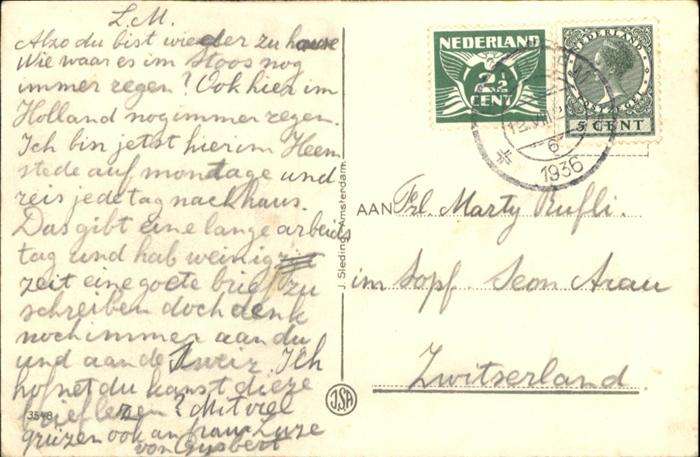 L. M.
Alzo du bist wieder zu hause
Wie waar es im Stoos nog
immer regen? Ook hier im
Holland nog immer regen.
Ich bin jetst hier im Heem
stede auf montage und
reis jede tag nach haus.
Das gibt eine lange arbeits
tag und hab weinig
zeit eine goete brief zu
schreiben doch denk
noch immer aan du
und aan de Zweiz. Ich
hof net du kanst dieze
brief lezen? Mit viel
grüzen ook an frau Luze
von Gijsbert
3548
J. Sleding, Amsterdam
JSA
NEDERLAND
2½
CENT
NEDERLAND
5 CENT
12 VIII
6
1936
AAN Frl. Marty Rufli.
im Sopf. Seon Arau
Zwitserland.